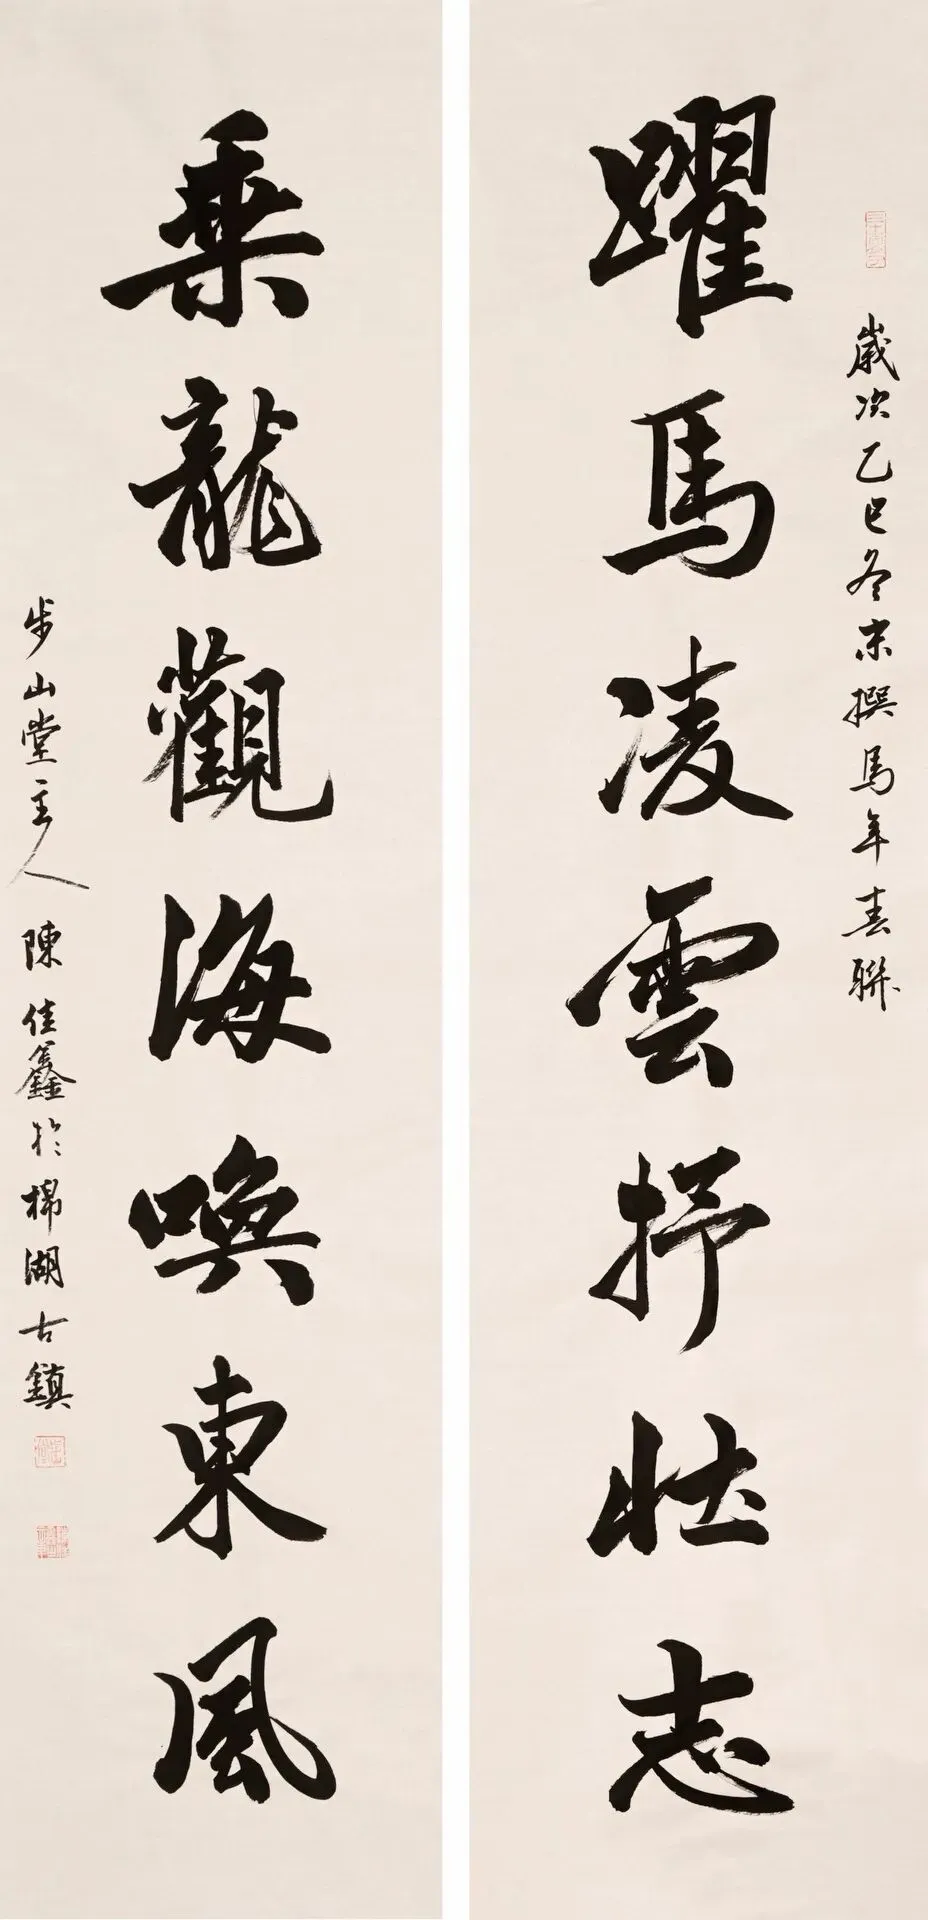 歲次乙巳冬末撰馬年春聯
躍馬凌雲抒壯志
乘龍觀海喚東風
步山堂主人陳佳鑫於棉湖古鎮